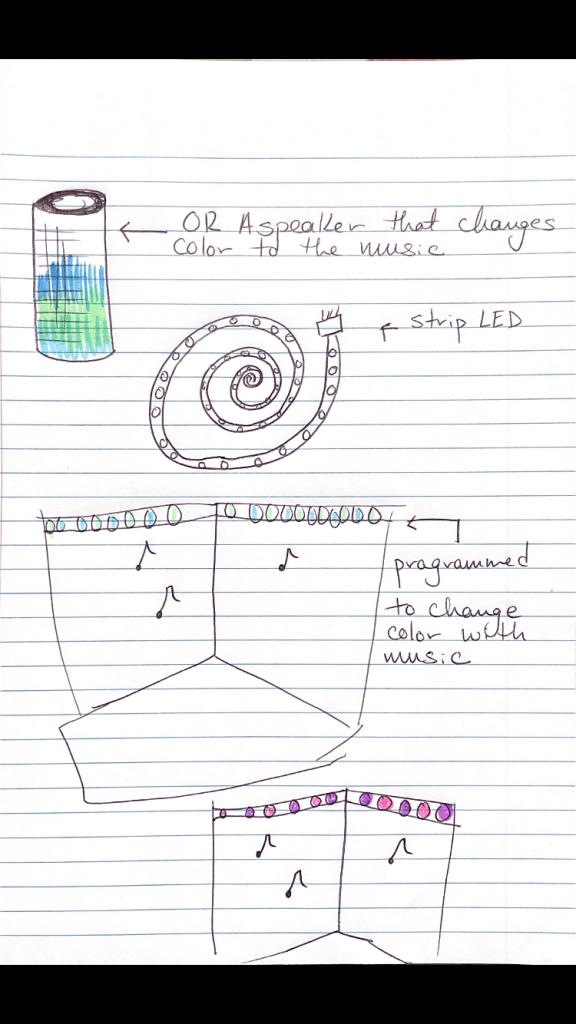 OR A speaker that changes
color to the music
strip LED
programmed
to change
color with
music